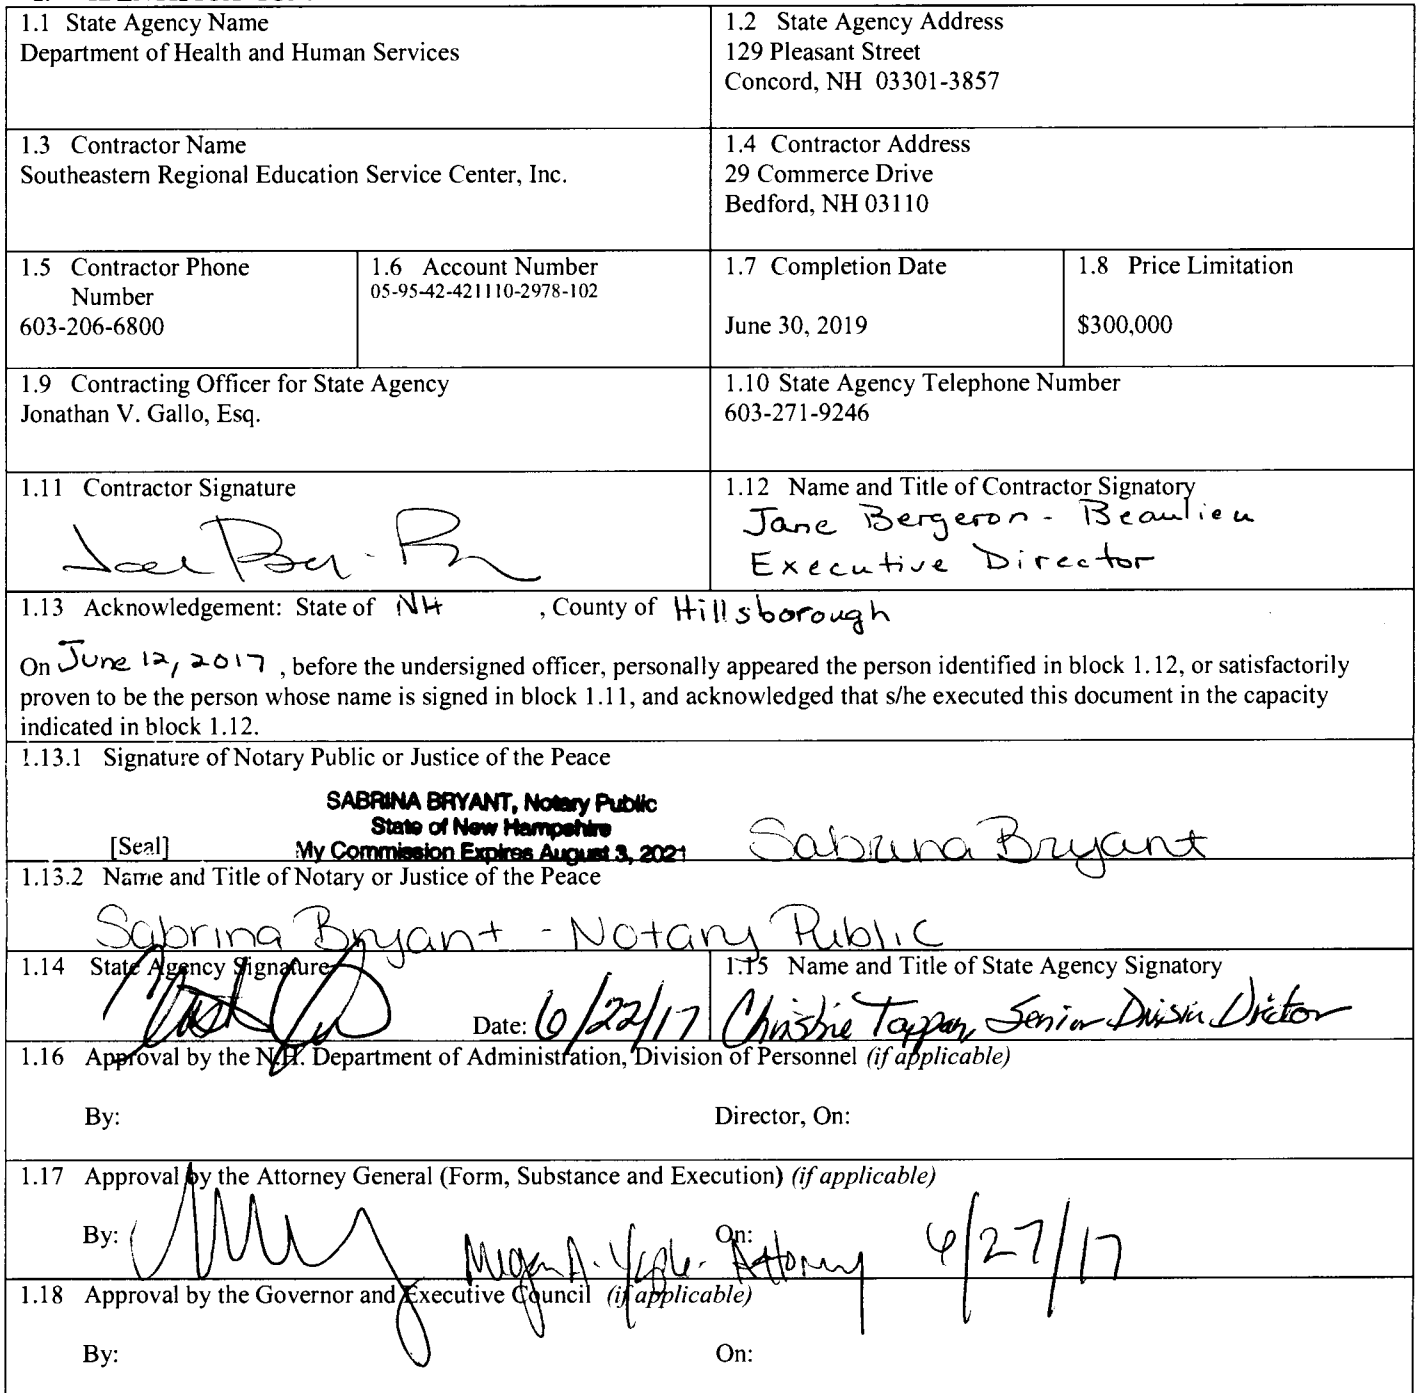 1.1 State Agency Name
Department of Health and Human Services
1.2 State Agency Address
129 Pleasant Street
Concord, NH 03301-3857
1.3 Contractor Name
Southeastern Regional Education Service Center, Inc.
1.4 Contractor Address
29 Commerce Drive
Bedford, NH 03110
1.5 Contractor Phone
Number
603-206-6800
1.6 Account Number
05-95-42-421110-2978-102
1.7 Completion Date
June 30, 2019
1.8 Price Limitation
$300,000
1.9 Contracting Officer for State Agency
Jonathan V. Gallo, Esq.
1.10 State Agency Telephone Number
603-271-9246
1.11 Contractor Signature
1.12 Name and Title of Contractor Signatory
Jane Bergeron-Beaulieu
Executive Director
1.13 Acknowledgement: State of NH , County of Hillsborough
On June 12, 2017 , before the undersigned officer, personally appeared the person identified in block 1.12, or satisfactorily
proven to be the person whose name is signed in block 1.11, and acknowledged that s/he executed this document in the capacity
indicated in block 1.12.
1.13.1 Signature of Notary Public or Justice of the Peace
SABRINA BRYANT, Notary Public
State of New Hampshire
[Seal] My Commission Expires August 3, 2021 Sabrina Bryant
1.13.2 Name and Title of Notary or Justice of the Peace
Sabrina Bryant - Notary Public
1.14 State Agency Signature
Date: 6/22/17
1.15 Name and Title of State Agency Signatory
Christine Tappan, Senior Division Director
1.16 Approval by the N.H. Department of Administration, Division of Personnel (if applicable)
By: Director, On:
1.17 Approval by the Attorney General (Form, Substance and Execution) (if applicable)
By: Megan A. Attorney On: 6/27/17
1.18 Approval by the Governor and Executive Council (if applicable)
By: On: